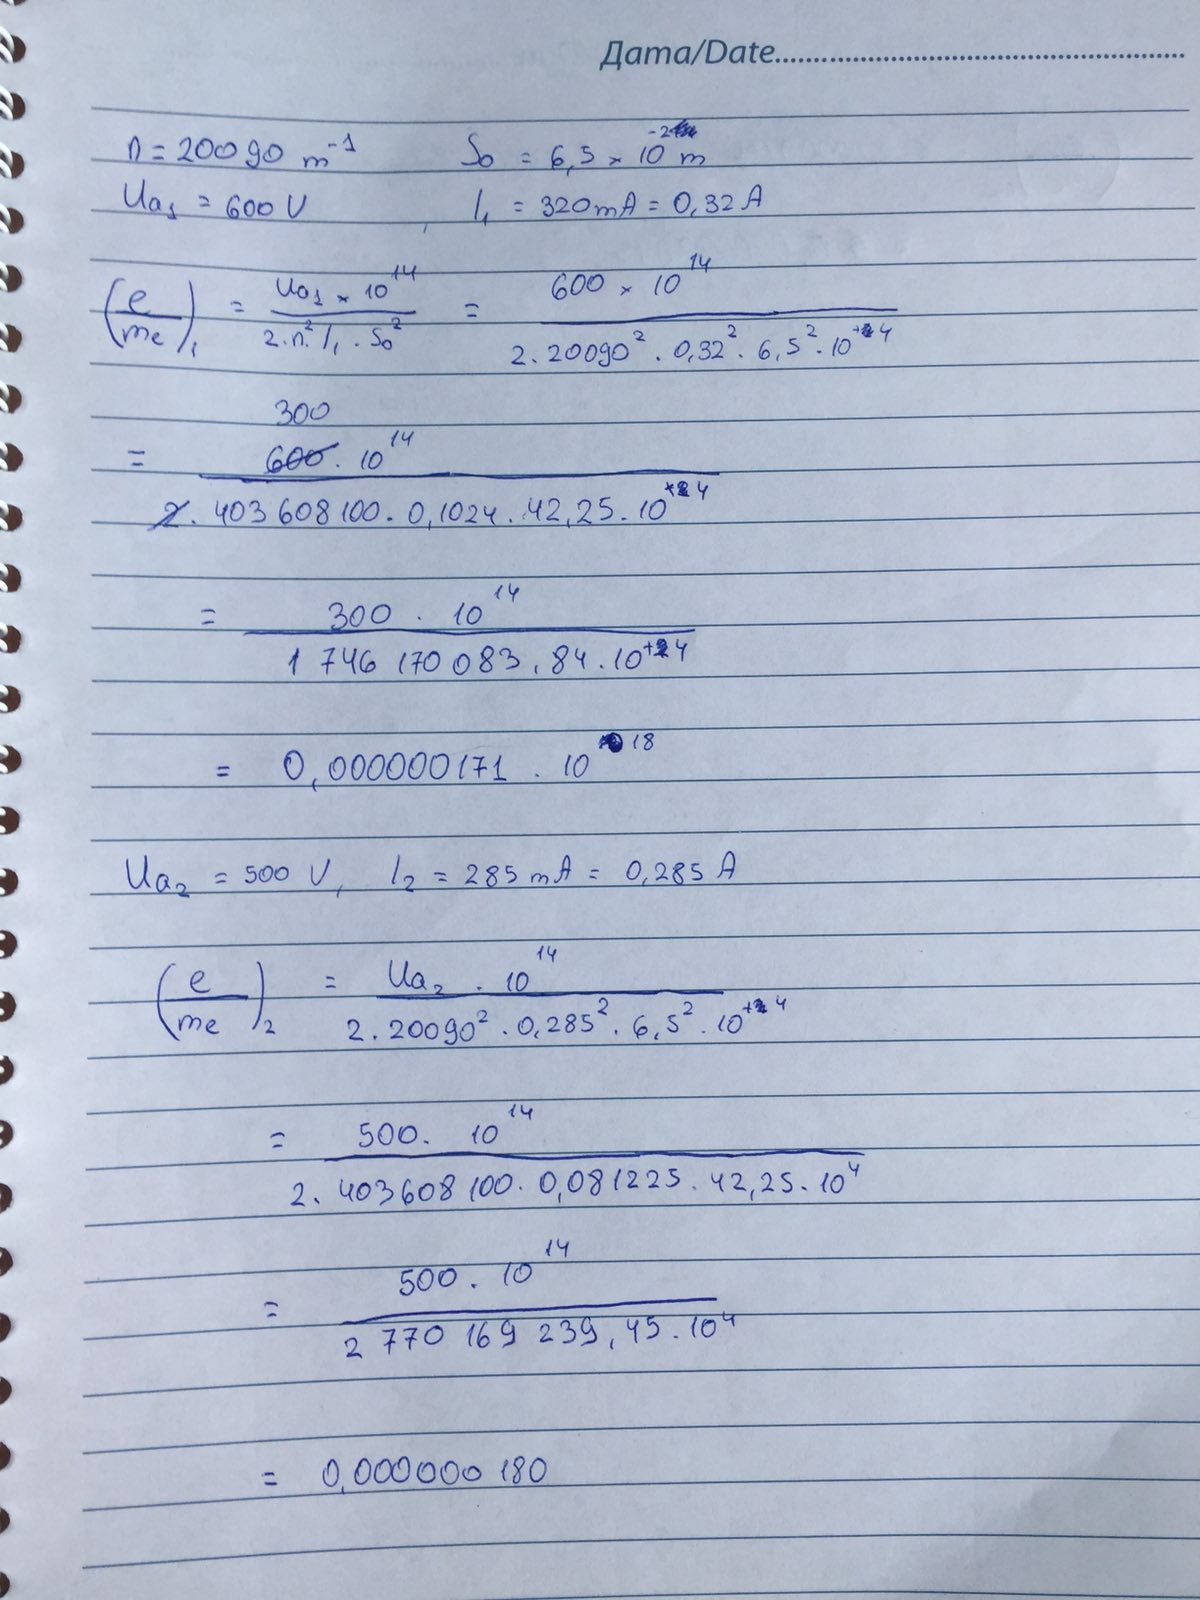 Дата/Date
n = 20090 m⁻¹ S₀ = 6,5 × 10⁻² m
Ua₁ = 600 V , I₁ = 320mA = 0,32 A
(e/me)₁ = Ua₁ × 10¹⁴ / 2.n².I₁.S₀² = 600 × 10¹⁴ / 2.20090².0,32².6,5².10⁺⁴
300
= 600.10¹⁴ / 2.403 608 100.0,1024.42,25.10⁺⁴
= 300 . 10¹⁴ / 1 746 170 083,84.10⁺⁴
= 0,000000171 . 10¹⁸
Ua₂ = 500 V, I₂ = 285 mA = 0,285 A
(e/me)₂ = Ua₂ . 10¹⁴ / 2.20090².0,285².6,5².10⁺⁴
= 500. 10¹⁴ / 2.403608 100.0,081225.42,25.10⁴
= 500.10¹⁴ / 2 770 169 239,45.10⁴
= 0,000000 180